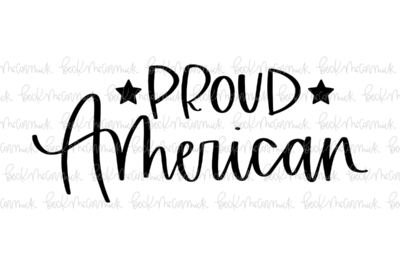 ★ PROUD ★
American